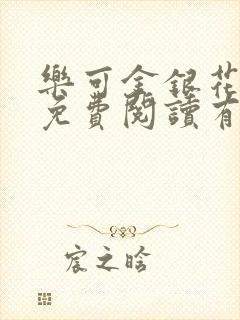 樂可金銀花
免費閱讀有
宸之晗